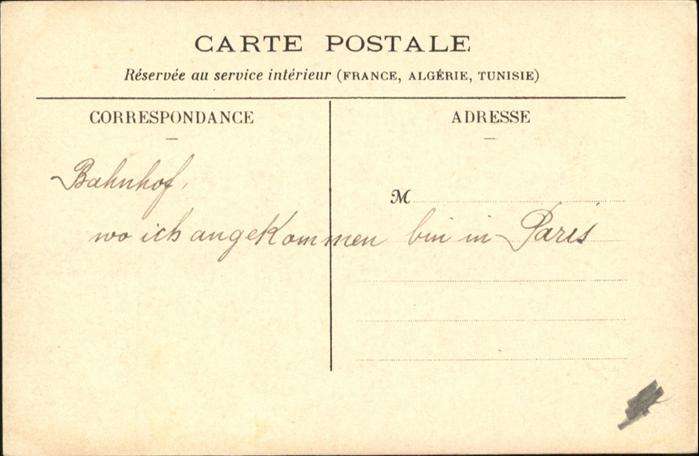 CARTE POSTALE
Réservée au service intérieur (FRANCE, ALGÉRIE, TUNISIE)
CORRESPONDANCE
ADRESSE
Bahnhof,
M
wo ich angekommen bin in Paris